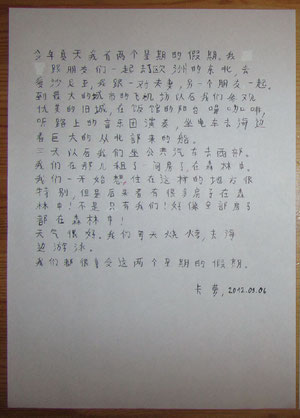 今年夏天我有两个星期的假期。我
跟朋友们一起去欧洲的东北,去
爱沙尼亚,我跟一对夫妻,另一个朋友一起。
到最大的城市的飞机场以后我们参观
优美的旧城,在饭馆的阳台喝咖啡,
听路上的音乐团演奏,坐电车去海边
看巨大的从北部来的船。
三天以后我们坐公共汽车去西部。
我们在那儿租了一间房子,在森林里。
我们一开始想,住在这样的地方很
特别,但是后来看有很多房子在森
林里!不是只有我们!好像全部房子
都在森林里!
天气很好。我们每天烧烤,去海
边游泳。
我们都很享受这两个星期的假期。
卡梦,2012.09.06